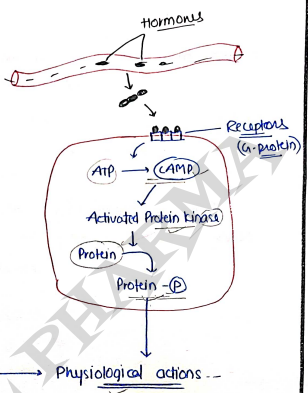 Hormones
Receptors
(G-protein)
ATP → cAMP
Activated Protein Kinase
Protein
Protein - P
Physiological actions --
PHARMA